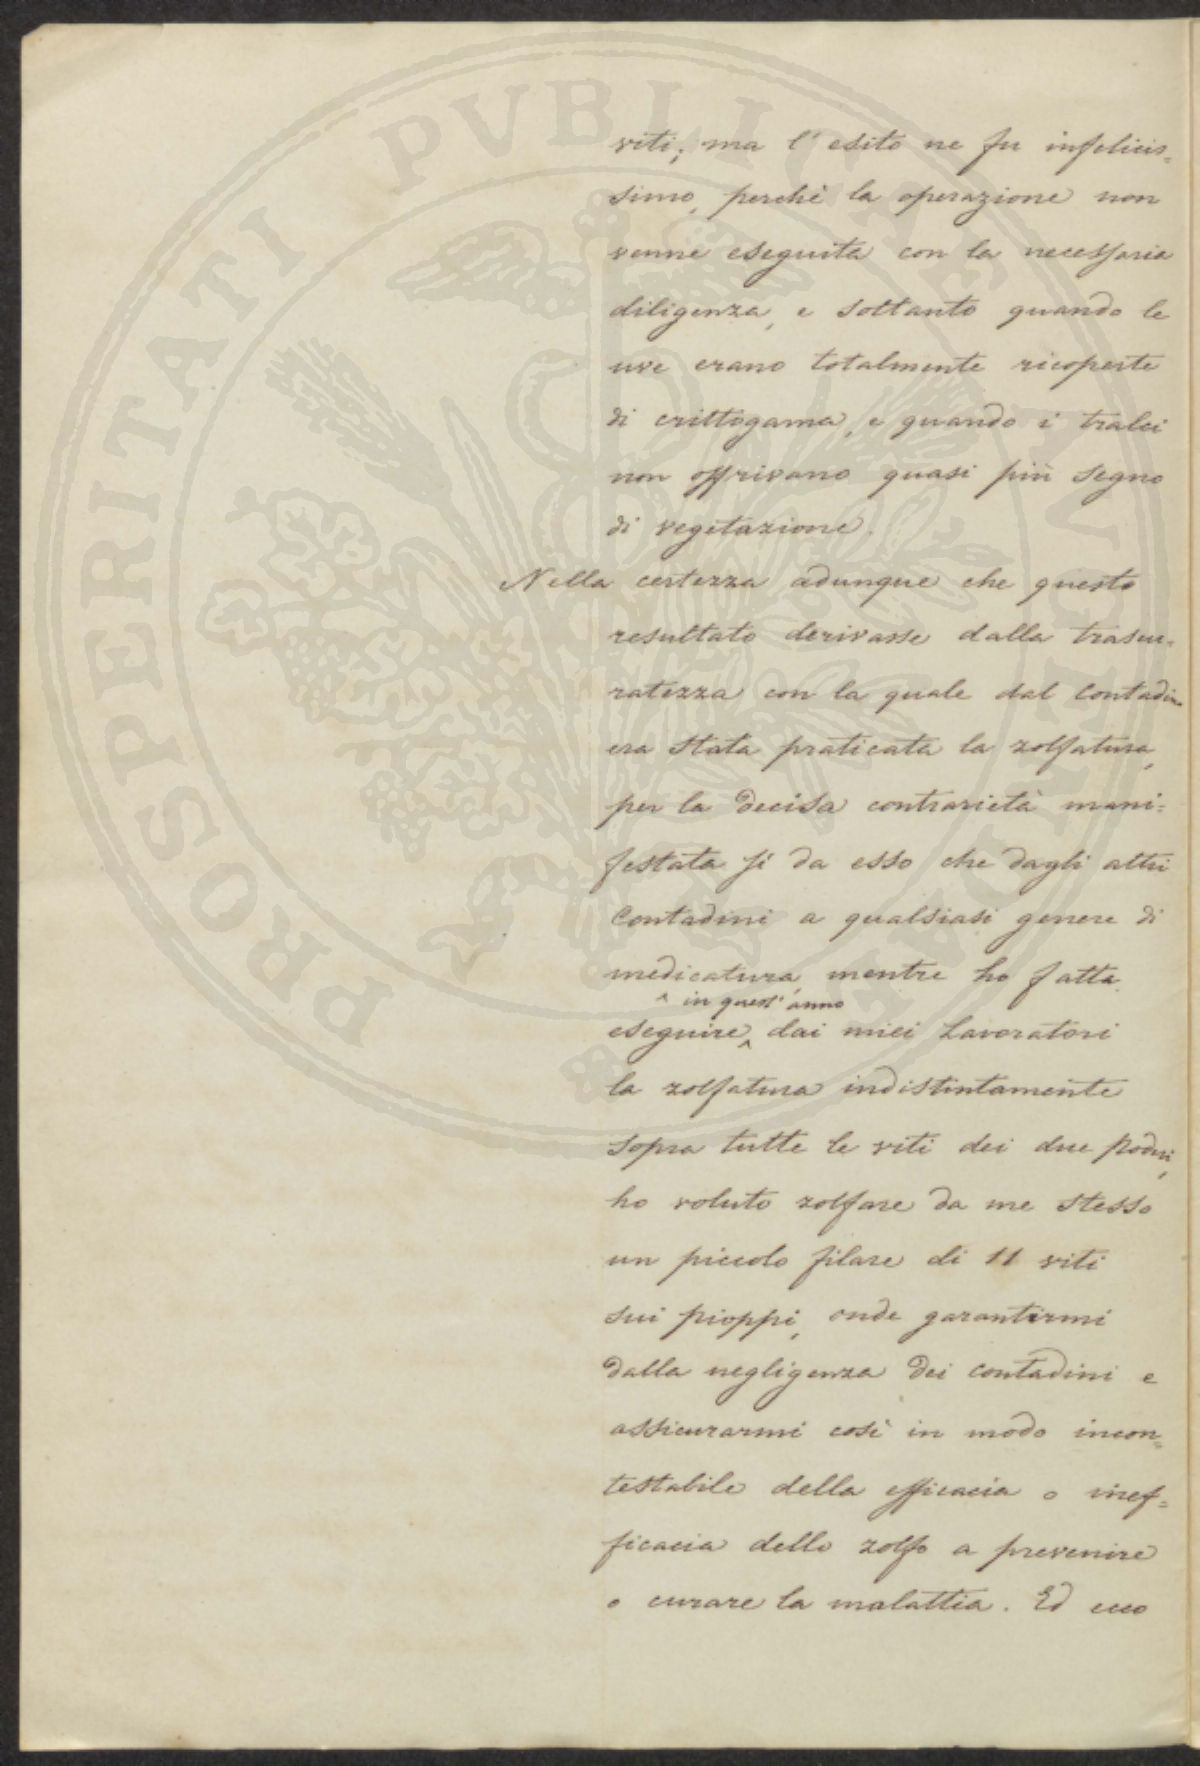 PROSPERITATI PVBLICAE AVGENDAE
viti; ma l'esito ne fu infelicis=
simo, perchè la operazione non
venne eseguita con la necessaria
diligenza, e soltanto quando le
uve erano totalmente ricoperte
di crittogama, e quando i tralci
non offrivano quasi più segno
di vegetazione.
Nella certezza adunque che questo
resultato derivasse dalla trascu=
ratezza con la quale dal Contadino
era stata praticata la zolfatura,
per la decisa contrarietà mani=
festata sì da esso che dagli altri
Contadini a qualsiasi genere di
medicatura, mentre ho fatta
^ in quest'anno
eseguire^ dai miei Lavoratori
la zolfatura indistintamente
sopra tutte le viti dei due Poderi,
ho voluto zolfare da me stesso
un piccolo filare di 11 viti
sui pioppi, onde garantirmi
dalla negligenza dei contadini e
assicurarmi così in modo incon=
testabile della efficacia o inef=
ficacia dello zolfo a prevenire
o curare la malattia. Ed ecco